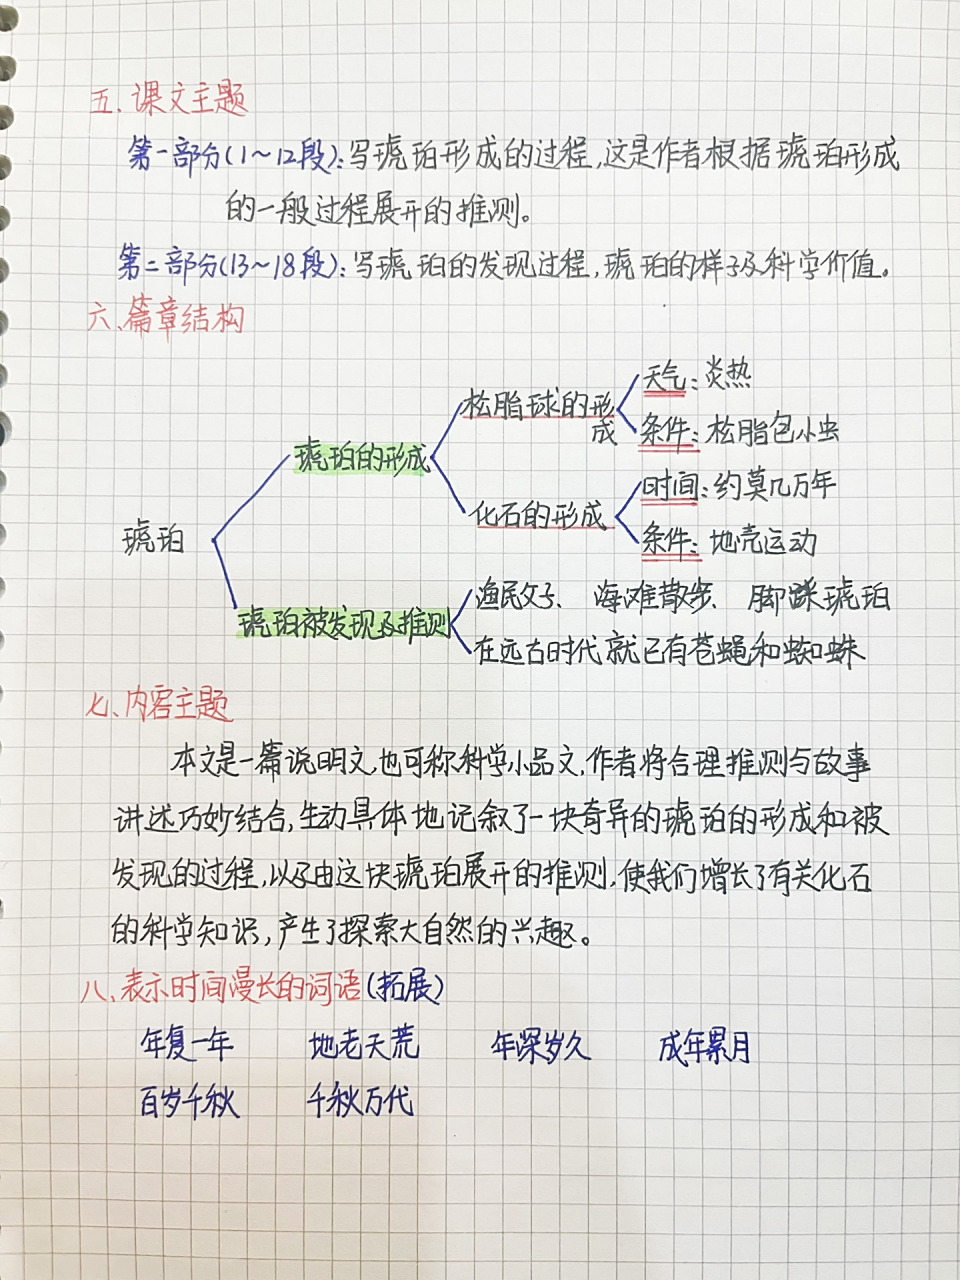 五、课文主题
第一部分(1～12段):写琥珀形成的过程,这是作者根据琥珀形成
的一般过程展开的推测。
第二部分(13～18段):写琥珀的发现过程,琥珀的样子及科学价值。
六、篇章结构
天气:炎热
松脂球的形
成
条件:松脂包小虫
琥珀的形成
时间:约莫几万年
化石的形成
条件:地壳运动
琥珀
渔民父子、海滩散步、脚踩琥珀
琥珀被发现及推测
在远古时代就已有苍蝇和蜘蛛
七、内容主题
本文是一篇说明文,也可称科学小品文,作者将合理推测与故事
讲述巧妙结合,生动具体地记叙了一块奇异的琥珀的形成和被
发现的过程,以及由这块琥珀展开的推测,使我们增长了有关化石
的科学知识,产生了探索大自然的兴趣。
八、表示时间漫长的词语(拓展)
年复一年 地老天荒 年深岁久 成年累月
百岁千秋 千秋万代